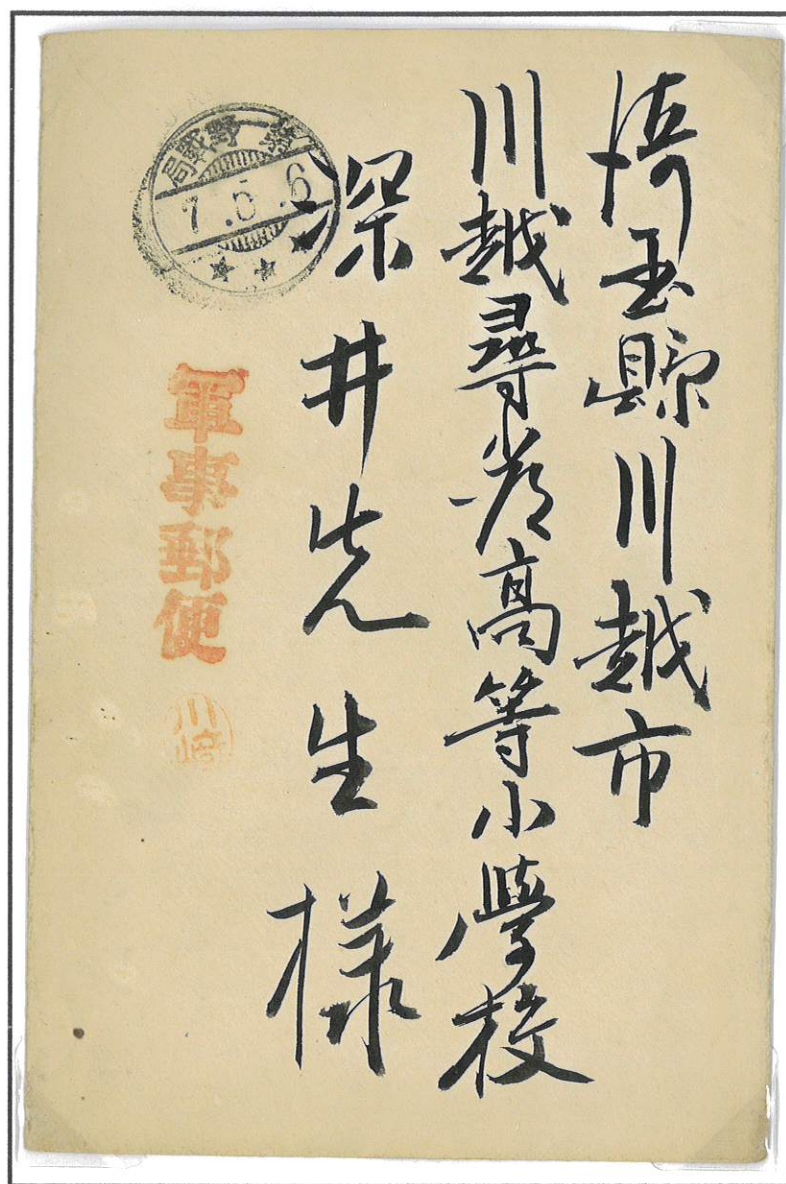 埼玉縣川越市
川越尋常高等小學校
深井先生様
野戰局
7.5.6
軍事郵便
川崎